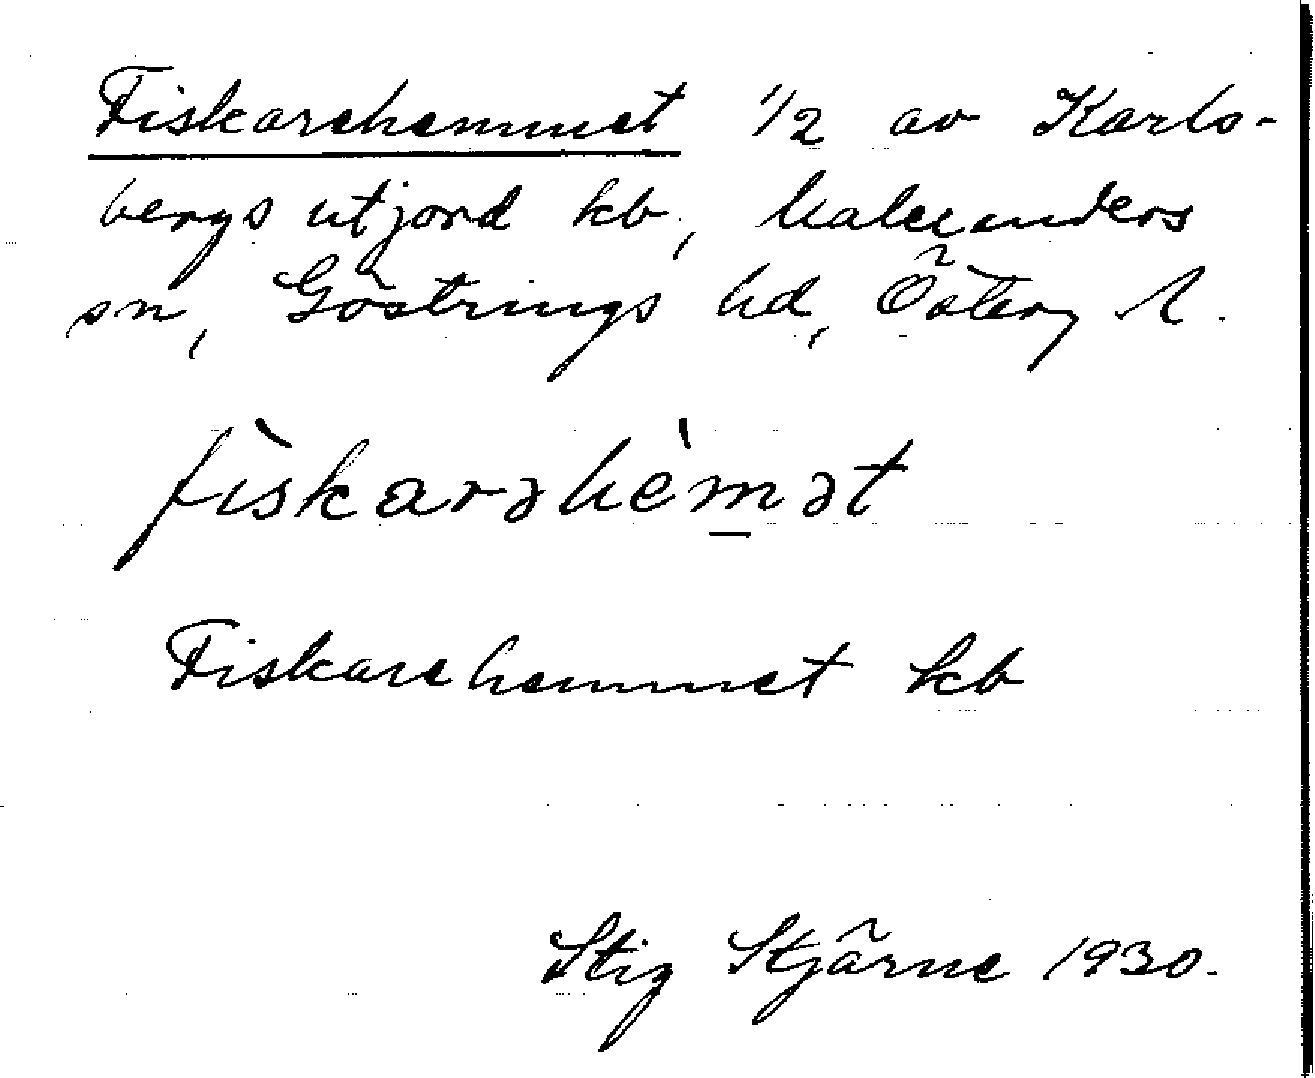 Fiskarehemmet 1/2 av Karls-
bergs utjord kb, Malexanders
sn, Göstrings hd, Österg l.
fiskarəhemət
Fiskarehemmet kb
Stig Stjärne 1930.